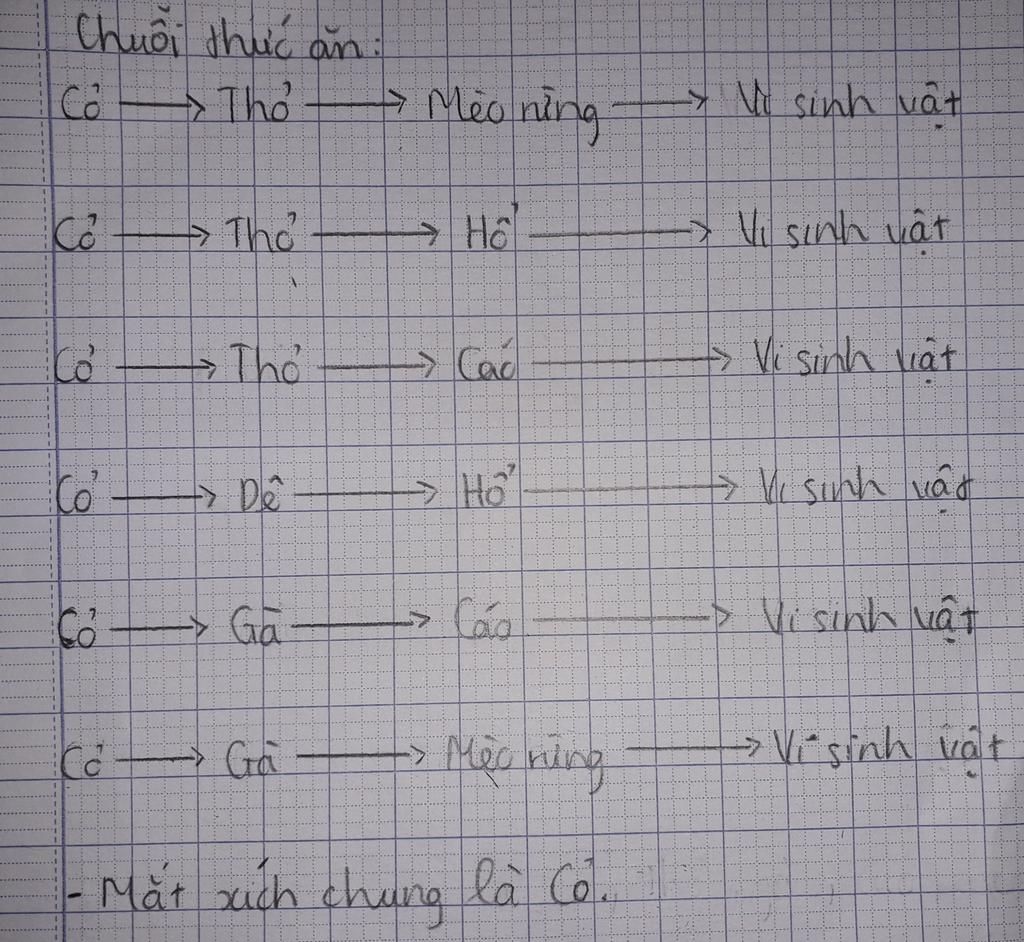 Chuỗi thức ăn:
Cỏ → Thỏ → Mèo rừng → Vi sinh vật
Cỏ → Thỏ → Hổ → Vi sinh vật
Cỏ → Thỏ → Cáo → Vi sinh vật
Cỏ → Dê → Hổ → Vi sinh vật
Cỏ → Gà → Cáo → Vi sinh vật
Cỏ → Gà → Mèo rừng → Vi sinh vật
- Mắt xích chung là Cỏ.